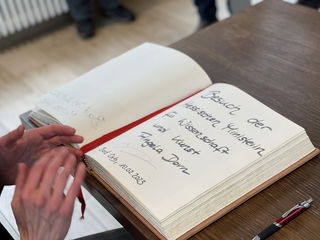 Besuch der
hessischen Ministerin
für Wissenschaft
und Kunst
Angela Dorn
Bad Orb, 10.02.2023